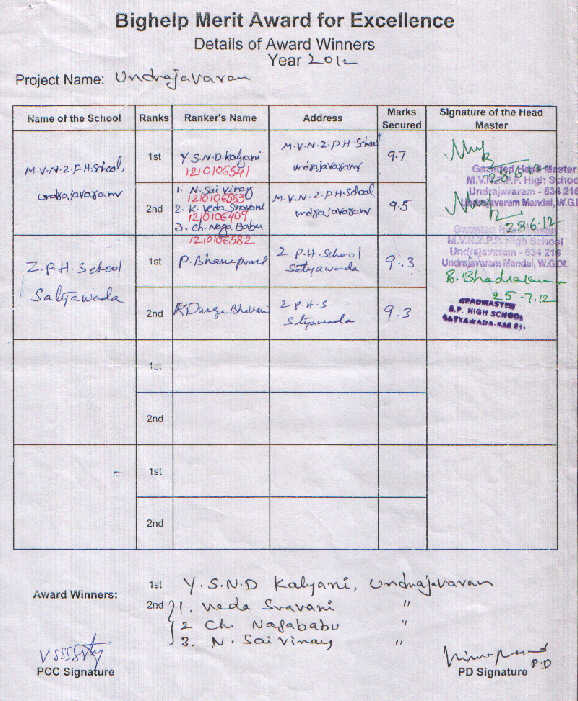 Bighelp Merit Award for Excellence
Details of Award Winners
Year 2012
Project Name: Undrajavaram
Name of the School Ranks Ranker's Name Address Marks Secured Signature of the Head Master
M.V.N.Z.P.H.School,
Undrajavaram
1st
Y.S.N.D Kalyani
1210106541
M.V.N.Z.P.H School
undrajavaram
9.7
2nd
1. N. Sai Vinay
2. K. Veda Sravani
1210106409
3. Ch. Naga Babu
1210106582
M.V.N.Z.P.H.School
undrajavaram
9.5
28.6.12
M.V.N.Z.P.P. High School
Undrajavaram - 534 216
Undrajavaram Mandal, W.G.Dt.
Z.P.H School
Satyawada
1st
P. Bhanu prasad
Z.P.H.School
Satyawada
9.3
25-7-12
2nd
K Durga Bhavani
Z P H S
Satyawada
9.3
HEADMASTER
Z.P. HIGH SCHOOL
1st
2nd
1st
2nd
Award Winners:
1st Y.S.N.D Kalyani, Undrajavaram
2nd 1. Veda Sravani "
2 Ch. Nagababu "
3. N. Sai Vinay "
PCC Signature
P.D
PD Signature